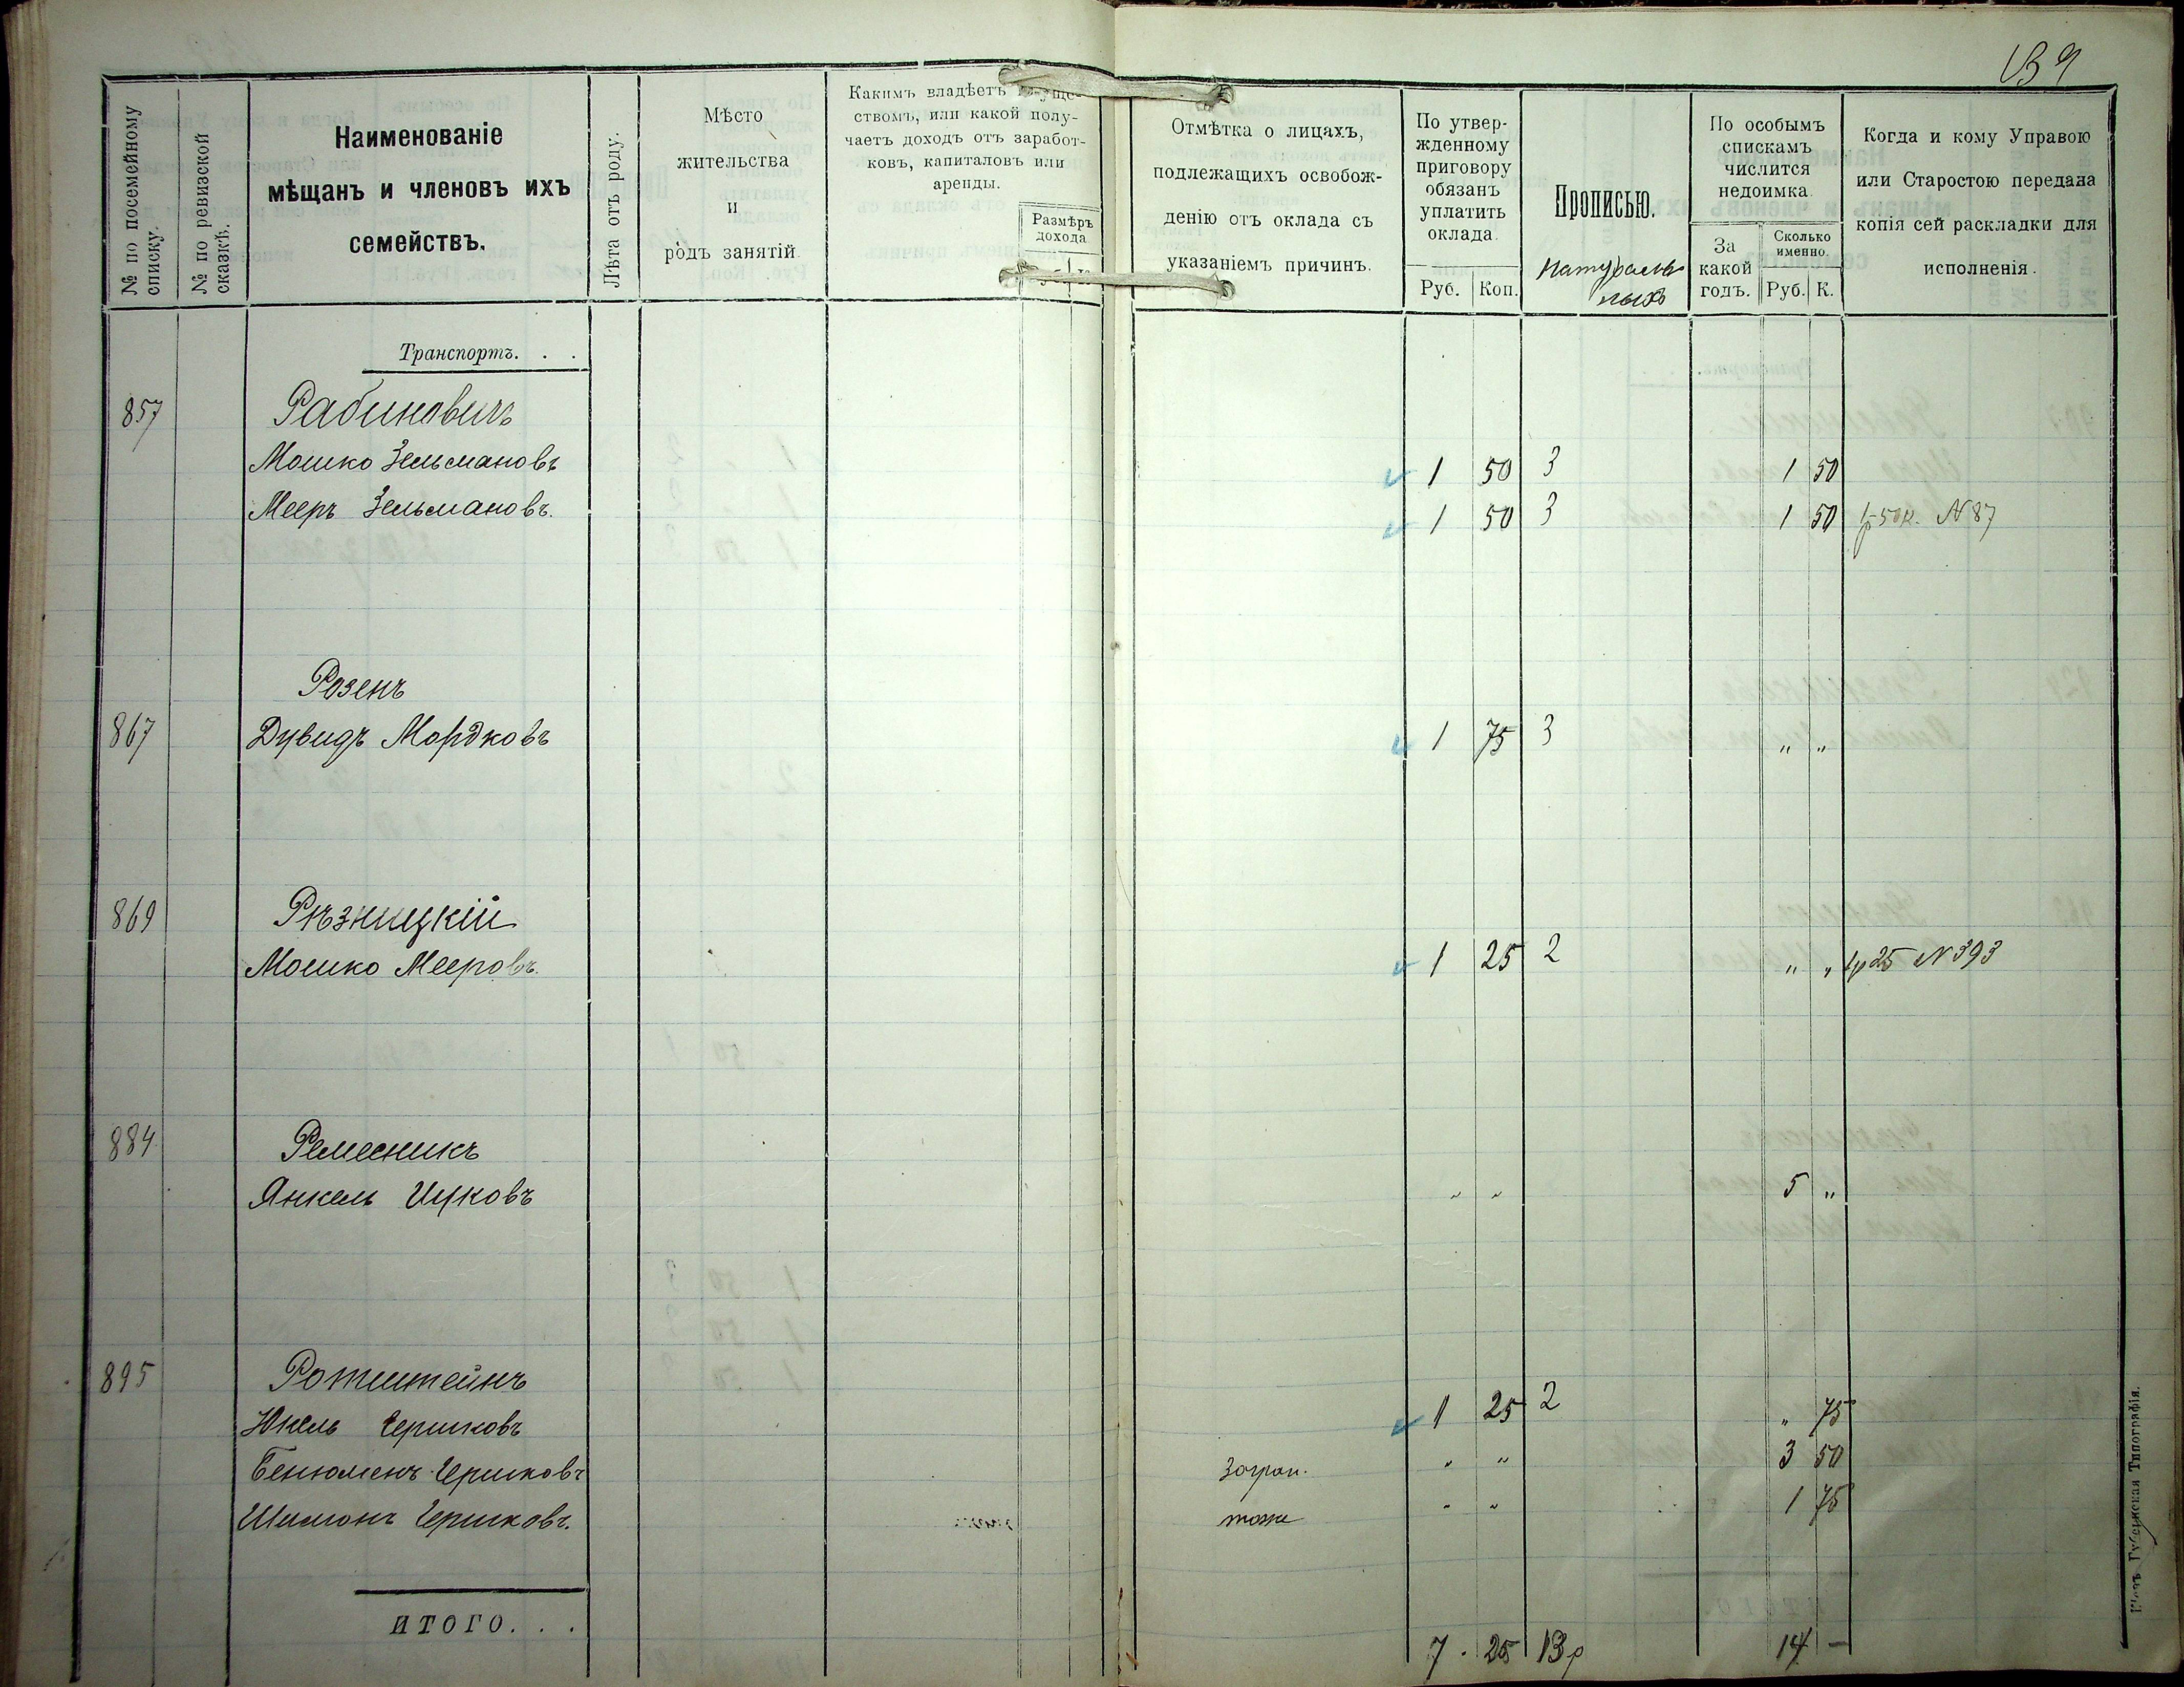 139
№ по посемейному списку.
№ по ревизской сказкѣ.
Наименованіе
мѣщанъ и членовъ ихъ
семействъ.
Лѣта отъ роду.
Мѣсто
жительства
и
родъ занятій.
Какимъ владѣетъ
ствомъ, или какой полу-
чаетъ доходъ отъ заработ-
ковъ, капиталовъ или
аренды.
Размѣръ
дохода.
Отмѣтка о лицахъ,
подлежащихъ освобож-
денію отъ оклада съ
указаніемъ причинъ.
По утвер-
жденному
приговору
обязанъ
уплатить
оклада.
Руб. Коп.
Прописью.
Натураль
ныхъ
По особымъ
спискамъ
числится
недоимка.
За
какой
годъ.
Сколько
именно.
Руб. К.
Когда и кому Управою
или Старостою передана
копія сей раскладки для
исполненія.
Транспортъ. . .
857 Рабиновичъ
Мошко Зельмановъ 1 50 3 1 50
Мееръ Зельмановъ. 1 50 3 1 50 1р50к. N87
Розенъ
867 Дувидъ Мордковъ 1 75 3 " "
869 Рѣзницкій
Мошко Мееровъ. 1 25 2 " " 1р25 N393
884 Ремесникъ
Янкель Ицковъ " " 5 "
895 Ротштейнъ
Юкель Гершковъ 1 25 2 " 75
Бенюменъ Гершковъ Загран. " " 3 50
Шимонъ Гершковъ. тоже " " 1 75
ИТОГО. . .
7 . 25 13р 14 —
Кіевъ Губернская Типографія.